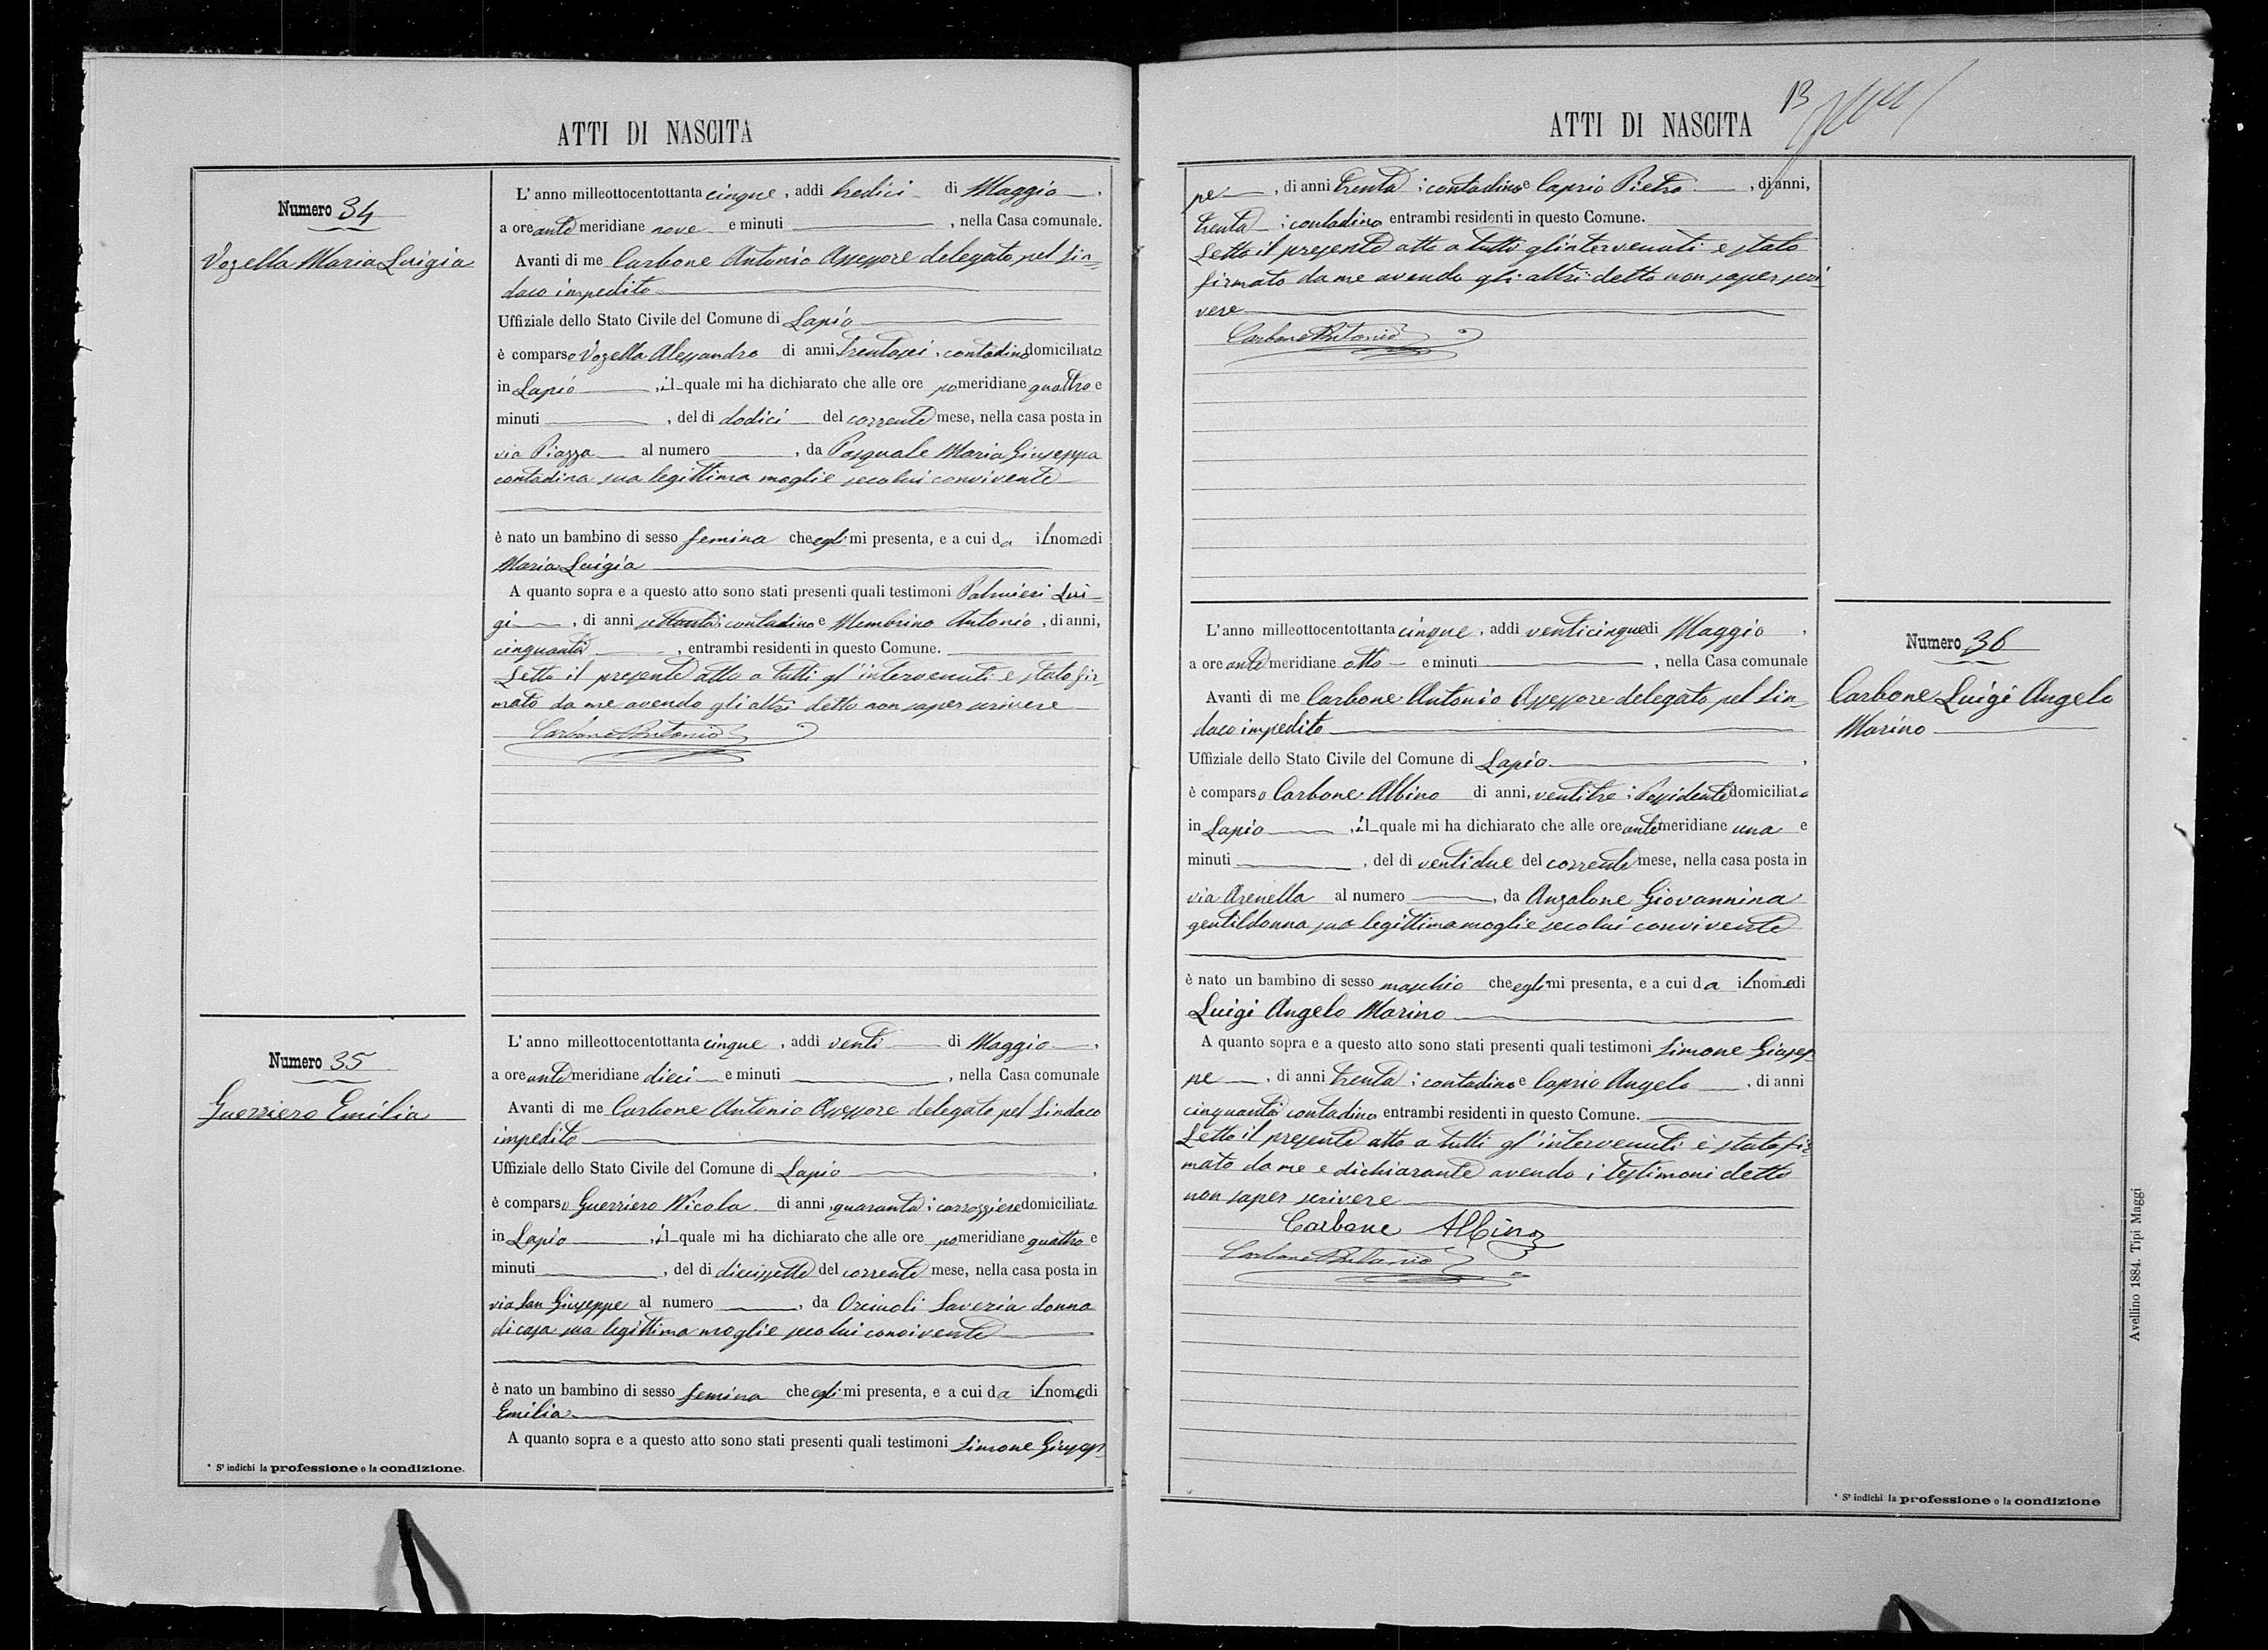 ATTI DI NASCITA
Numero 34
Vozella Maria Luigia
L' anno milleottocentottanta cinque, addì tredici di Maggio,
a ore ante meridiane nove e minuti , nella Casa comunale.
Avanti di me Carbone Antonio Assessore delegato pel Sin-
daco impedito
Uffiziale dello Stato Civile del Comune di Lapio
è comparso Vozella Alessandro di anni trentasei, contadino domiciliato
in Lapio , il quale mi ha dichiarato che alle ore pomeridiane quattro e
minuti , del dì dodici del corrente mese, nella casa posta in
via Piazza al numero , da Pasquale Maria Giuseppa
contadina sua legittima moglie seco lui convivente
è nato un bambino di sesso femina che egli mi presenta, e a cui da il nome di
Maria Luigia
A quanto sopra e a questo atto sono stati presenti quali testimoni Palmieri Lui-
gi , di anni settanta: contadino e Membrino Antonio, di anni,
cinquanta , entrambi residenti in questo Comune.
Letto il presente atto a tutti gl' intervenuti è stato fir-
mato da me avendo gli altri detto non saper scrivere
Carbone Antonio
Numero 35
Guerriero Emilia
L' anno milleottocentottanta cinque, addì venti di Maggio,
a ore ante meridiane dieci e minuti , nella Casa comunale
Avanti di me Carbone Antonio Assessore delegato pel Sindaco
impedito
Uffiziale dello Stato Civile del Comune di Lapio ,
è comparso Guerriero Nicola di anni, quaranta: carrozziere domiciliato
in Lapio , il quale mi ha dichiarato che alle ore pomeridiane quattro e
minuti , del dì diecissette del corrente mese, nella casa posta in
via San Giuseppe al numero , da Orciuoli Saveria donna
di casa sua legittima moglie seco lui convivente
è nato un bambino di sesso femina che egli mi presenta, e a cui da il nome di
Emilia
A quanto sopra e a questo atto sono stati presenti quali testimoni Simone Giusep-
* S' indichi la professione o la condizione.
ATTI DI NASCITA
13
pe , di anni trenta: contadino e Caprio Pietro , di anni,
trenta: contadino entrambi residenti in questo Comune.
Letto il presente atto a tutti gl'intervenuti è stato
firmato da me avendo gli altri detto non saper scri-
vere
Carbone Antonio
Numero 36
Carbone Luigi Angelo
Marino
L'anno milleottocentottanta cinque, addì venticinque di Maggio ,
a ore ante meridiane otto e minuti , nella Casa comunale
Avanti di me Carbone Antonio Assessore delegato pel Sin-
daco impedito
Uffiziale dello Stato Civile del Comune di Lapio ,
è comparso Carbone Albino di anni, ventitre: Possidente domiciliato
in Lapio , il quale mi ha dichiarato che alle ore antemeridiane una e
minuti , del dì ventidue del corrente mese, nella casa posta in
via Arenella al numero , da Anzalone Giovannina
gentildonna sua legittima moglie seco lui convivente
è nato un bambino di sesso maschio che egli mi presenta, e a cui da il nome di
Luigi Angelo Marino
A quanto sopra e a questo atto sono stati presenti quali testimoni Simone Giusep-
pe , di anni trenta: contadino e Caprio Angelo , di anni
cinquanta contadino entrambi residenti in questo Comune.
Letto il presente atto a tutti gl' intervenuti è stato fir-
mato da me e dichiarante avendo i testimoni detto
non saper scrivere
Carbone Albino
Carbone Antonio
* S' indichi la professione o la condizione
Avellino 1884. Tipi Maggi